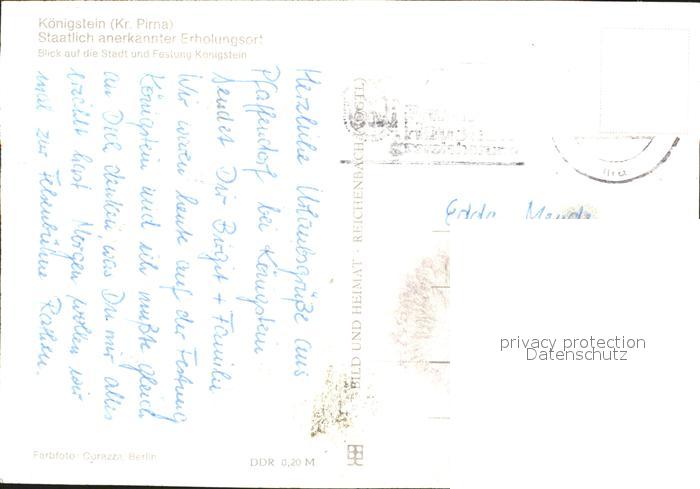 Königstein (Kr. Pirna)
Staatlich anerkannter Erholungsort
Blick auf die Stadt und Festung Königstein
Herzliche Urlaubsgrüße aus
Pfaffendorf bei Königstein
sendet Dir Birgit + Familie
Wir waren heute auf der Festung
Königstein und ich mußte gleich
an Dich denken was Du mir alles
erzählt hast. Morgen wollen wir
mal zur Felsenbühne Rathen.
BILD UND HEIMAT · REICHENBACH (VOGTL)
Edda
privacy protection
Datenschutz
Farbfoto: Berlin
DDR 0,20 M